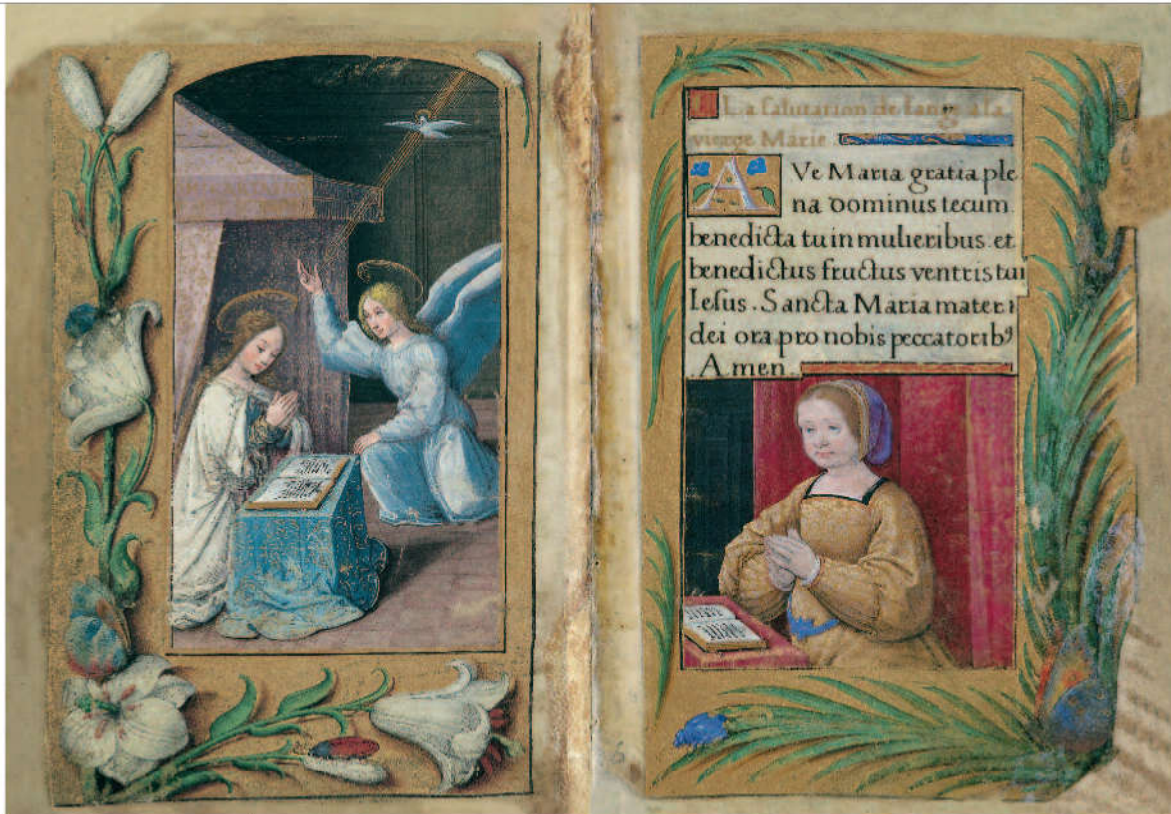 La salutation de lange a la
vierge Marie
AVe Maria gratia ple
na dominus tecum
benedicta tu in mulieribus et
benedictus fructus ventris tui
Iesus. Sancta Maria mater
dei ora pro nobis peccatorib⁹
Amen.